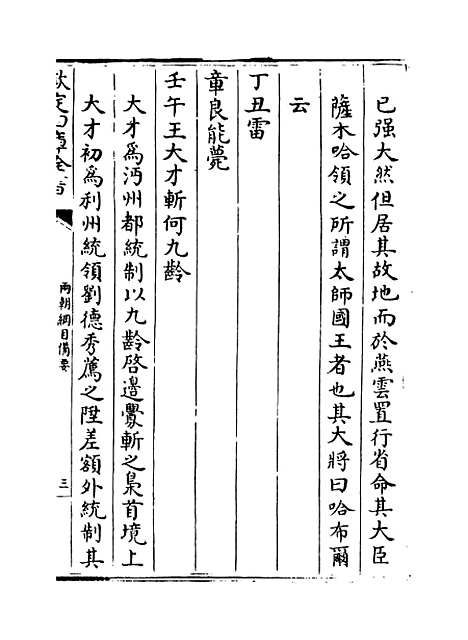 已强大然但居其故地而於燕雲置行省命其大臣
薩木哈領之所謂太師國王者也其大將曰哈布爾
云
丁丑雷
章良能薨
壬午王大才斬何九齡
大才爲沔州都統制以九齡啓邊釁斬之梟首境上
大才初爲利州統領劉德秀薦之陞差額外統制其
欽定四庫全書
兩朝綱目備要
三